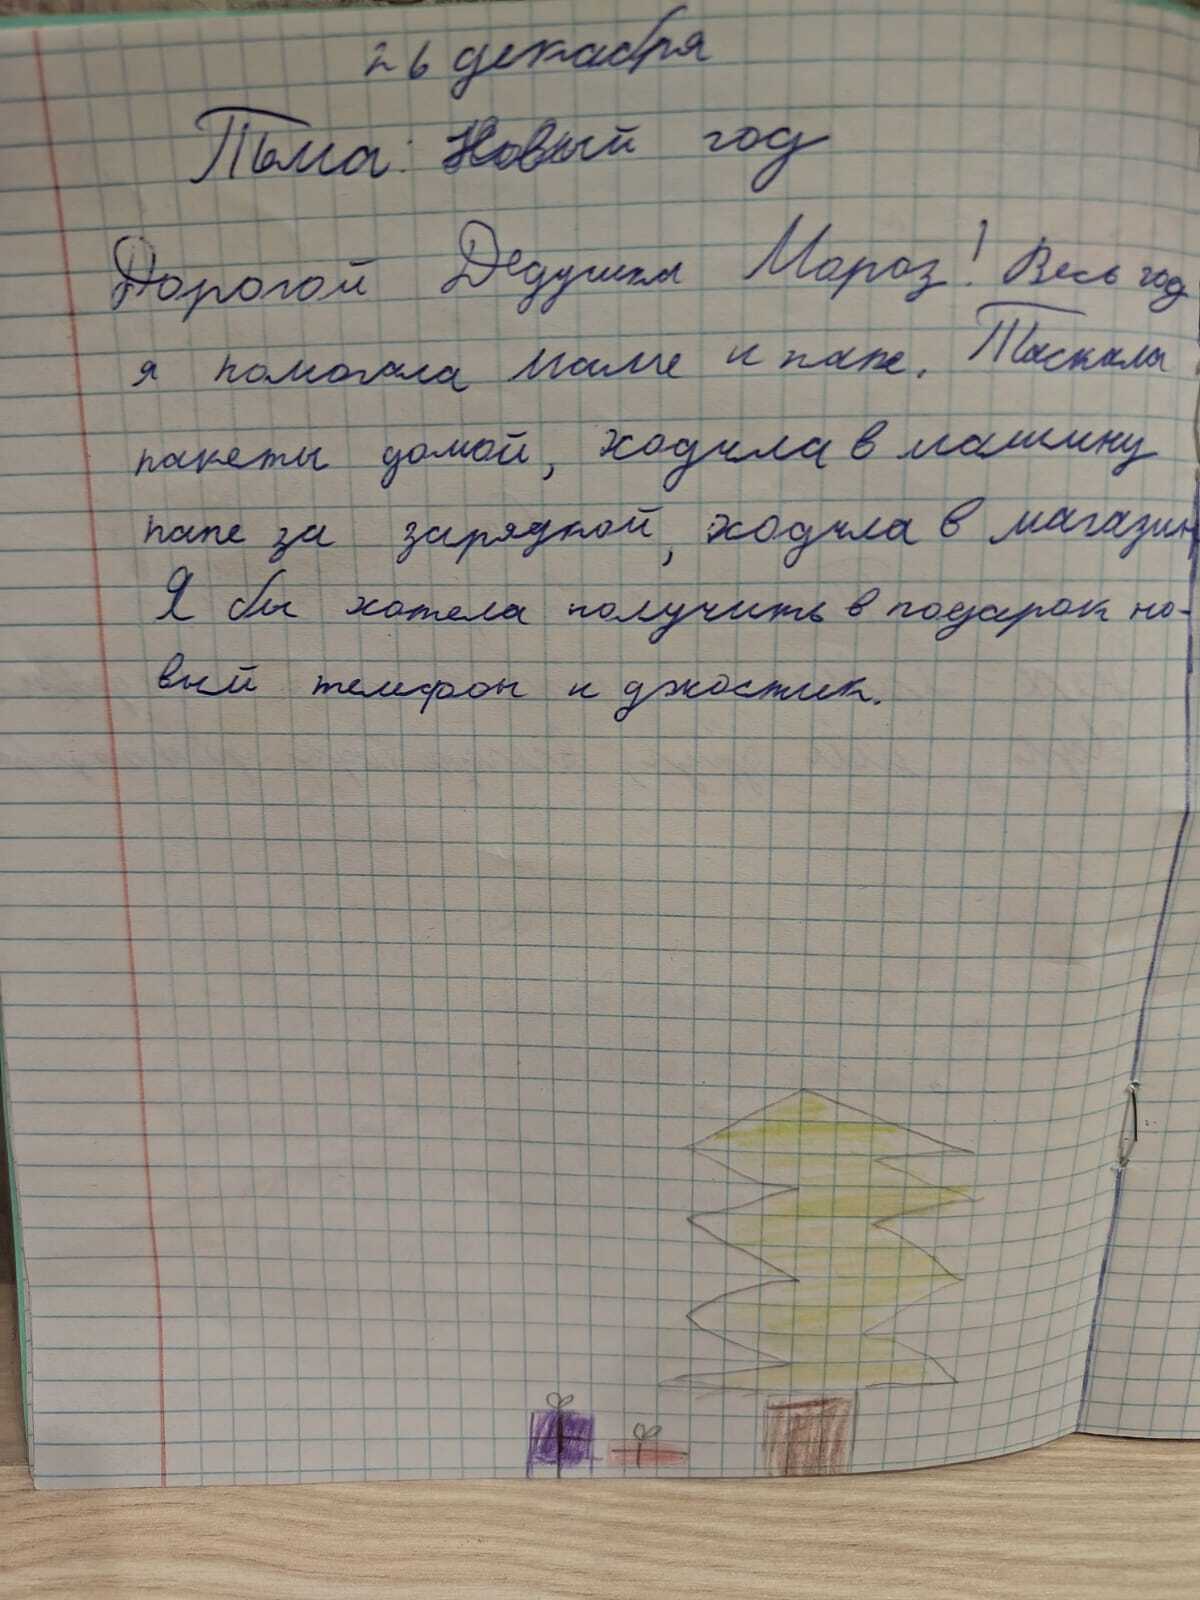 26 декабря
Тема: Новый год
Дорогой Дедушка Мороз! Весь год
я помогала маме и папе. Таскала
пакеты домой, ходила в машину
папе за зарядкой, ходила в магазин
Я бы хотела получить в подарок но-
вый телефон и джостик.